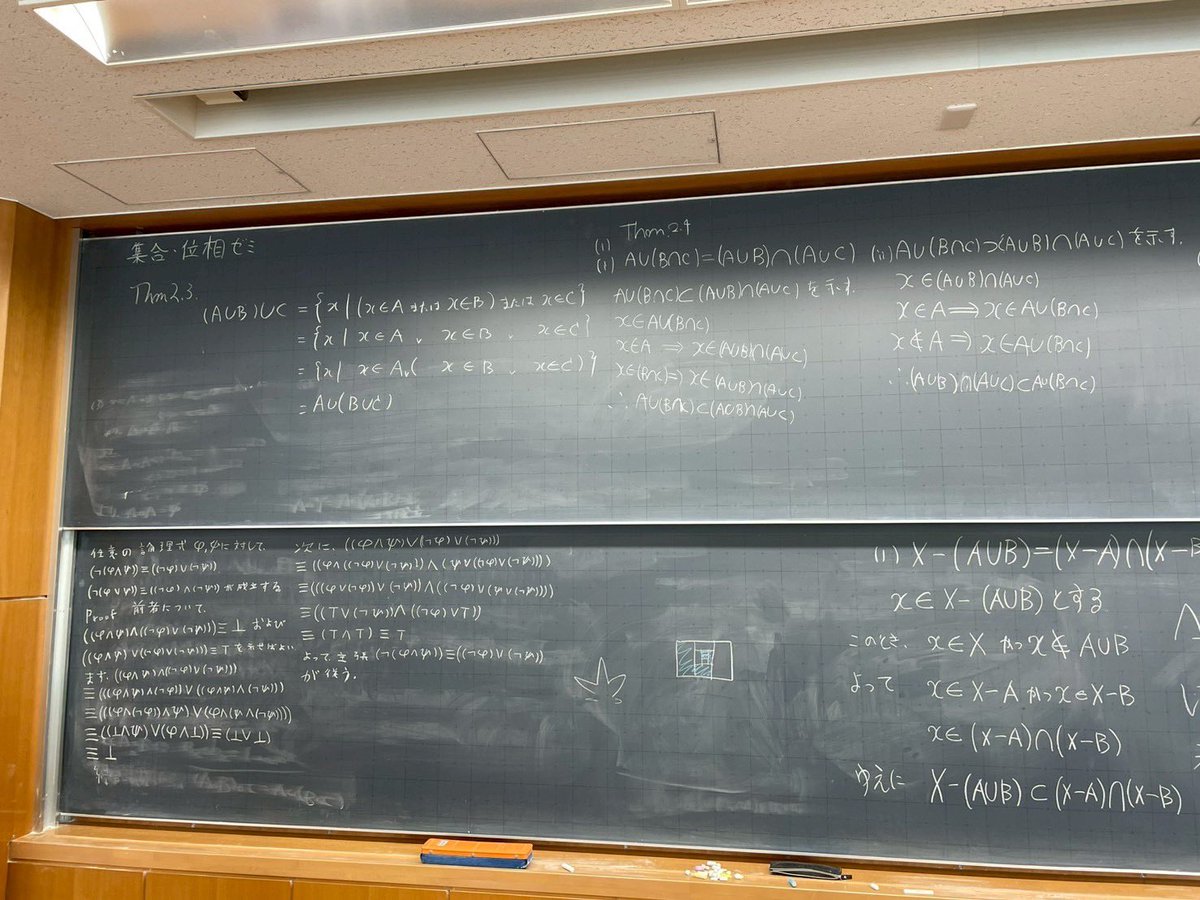 集合・位相ゼミ
Thm 2.3.
(A∪B)∪C = {x | (x∈A または x∈B) または x∈C}
= {x | x∈A ∨ x∈B ∨ x∈C}
= {x | x∈A ∨ ( x∈B ∨ x∈C)}
= A∪(B∪C)
(1) Thm 2.4
(i) A∪(B∩C)=(A∪B)∩(A∪C)
A∪(B∩C)⊂(A∪B)∩(A∪C) を示す.
x∈A∪(B∩C)
x∈A ⇒ x∈(A∪B)∩(A∪C)
x∈(B∩C)⇒ x∈(A∪B)∩(A∪C)
∴ A∪(B∩C)⊂(A∪B)∩(A∪C)
(ii) A∪(B∩C)⊃(A∪B)∩(A∪C) を示す.
x∈(A∪B)∩(A∪C)
x∈A ⇒ x∈A∪(B∩C)
x∉A ⇒ x∈A∪(B∩C)
∴(A∪B)∩(A∪C)⊂A∪(B∩C)
任意の論理式 φ,ψに対して,
(¬(φ∧ψ))≡((¬φ)∨(¬ψ))
(¬(φ∨ψ))≡((¬φ)∧(¬ψ)) が成立する
Proof 前者について,
((φ∧ψ)∧((¬φ)∨(¬ψ)))≡⊥ および
((φ∧ψ)∨((¬φ)∨(¬ψ)))≡T を示せばよい
まず, ((φ∧ψ)∧((¬φ)∨(¬ψ)))
≡(((φ∧ψ)∧(¬φ))∨((φ∧ψ)∧(¬ψ)))
≡(((φ∧(¬φ))∧ψ)∨(φ∧(ψ∧(¬ψ))))
≡((⊥∧ψ)∨(φ∧⊥))≡(⊥∨⊥)
≡⊥
次に, ((φ∧ψ)∨((¬φ)∨(¬ψ)))
≡((φ∨((¬φ)∨(¬ψ)))∧(ψ∨((¬φ)∨(¬ψ))))
≡(((φ∨(¬φ))∨(¬ψ))∧((¬φ)∨(ψ∨(¬ψ))))
≡((T∨(¬ψ))∧((¬φ)∨T))
≡(T∧T)≡T
よって主張 (¬(φ∧ψ))≡((¬φ)∨(¬ψ))
が従う.
(1) X-(A∪B)=(X-A)∩(X-B
x∈X-(A∪B) とする
このとき, x∈X かつ x∉A∪B
よって x∈X-A かつ x∈X-B
x∈(X-A)∩(X-B)
ゆえに X-(A∪B)⊂(X-A)∩(X-B)